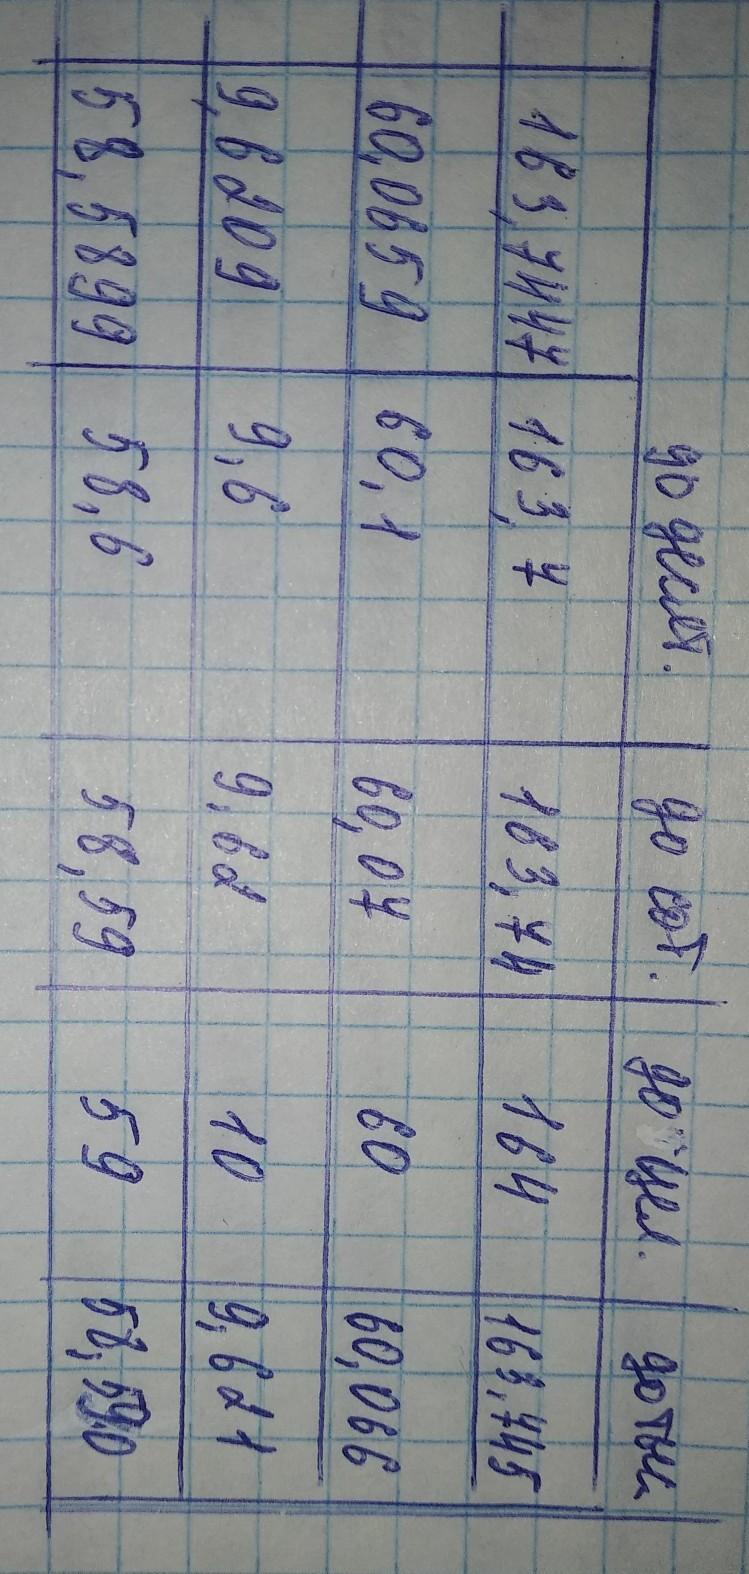 до десят. до сот. до цел. до тыс
163,7447 163,7 163,74 164 163,745
60,0659 60,1 60,07 60 60,066
9,6209 9,6 9,62 10 9,621
58,5899 58,6 58,59 59 58,590